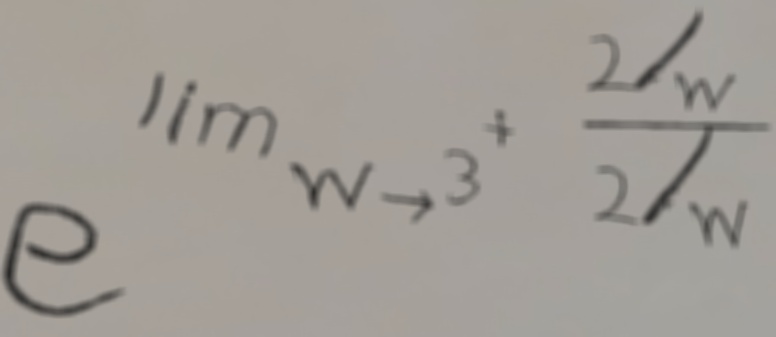 e^{\lim_{w \to 3^+} \frac{2/w}{2/w}}